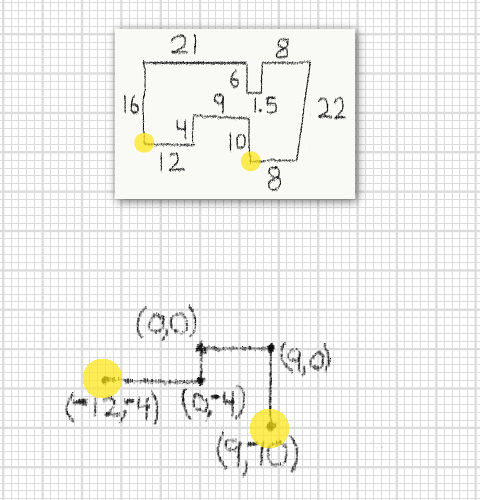 21 8
6
16 9 1.5 22
4 10
12 8
(0,0)
(9,0)
(-12,-4) (0,-4)
(9,-10)